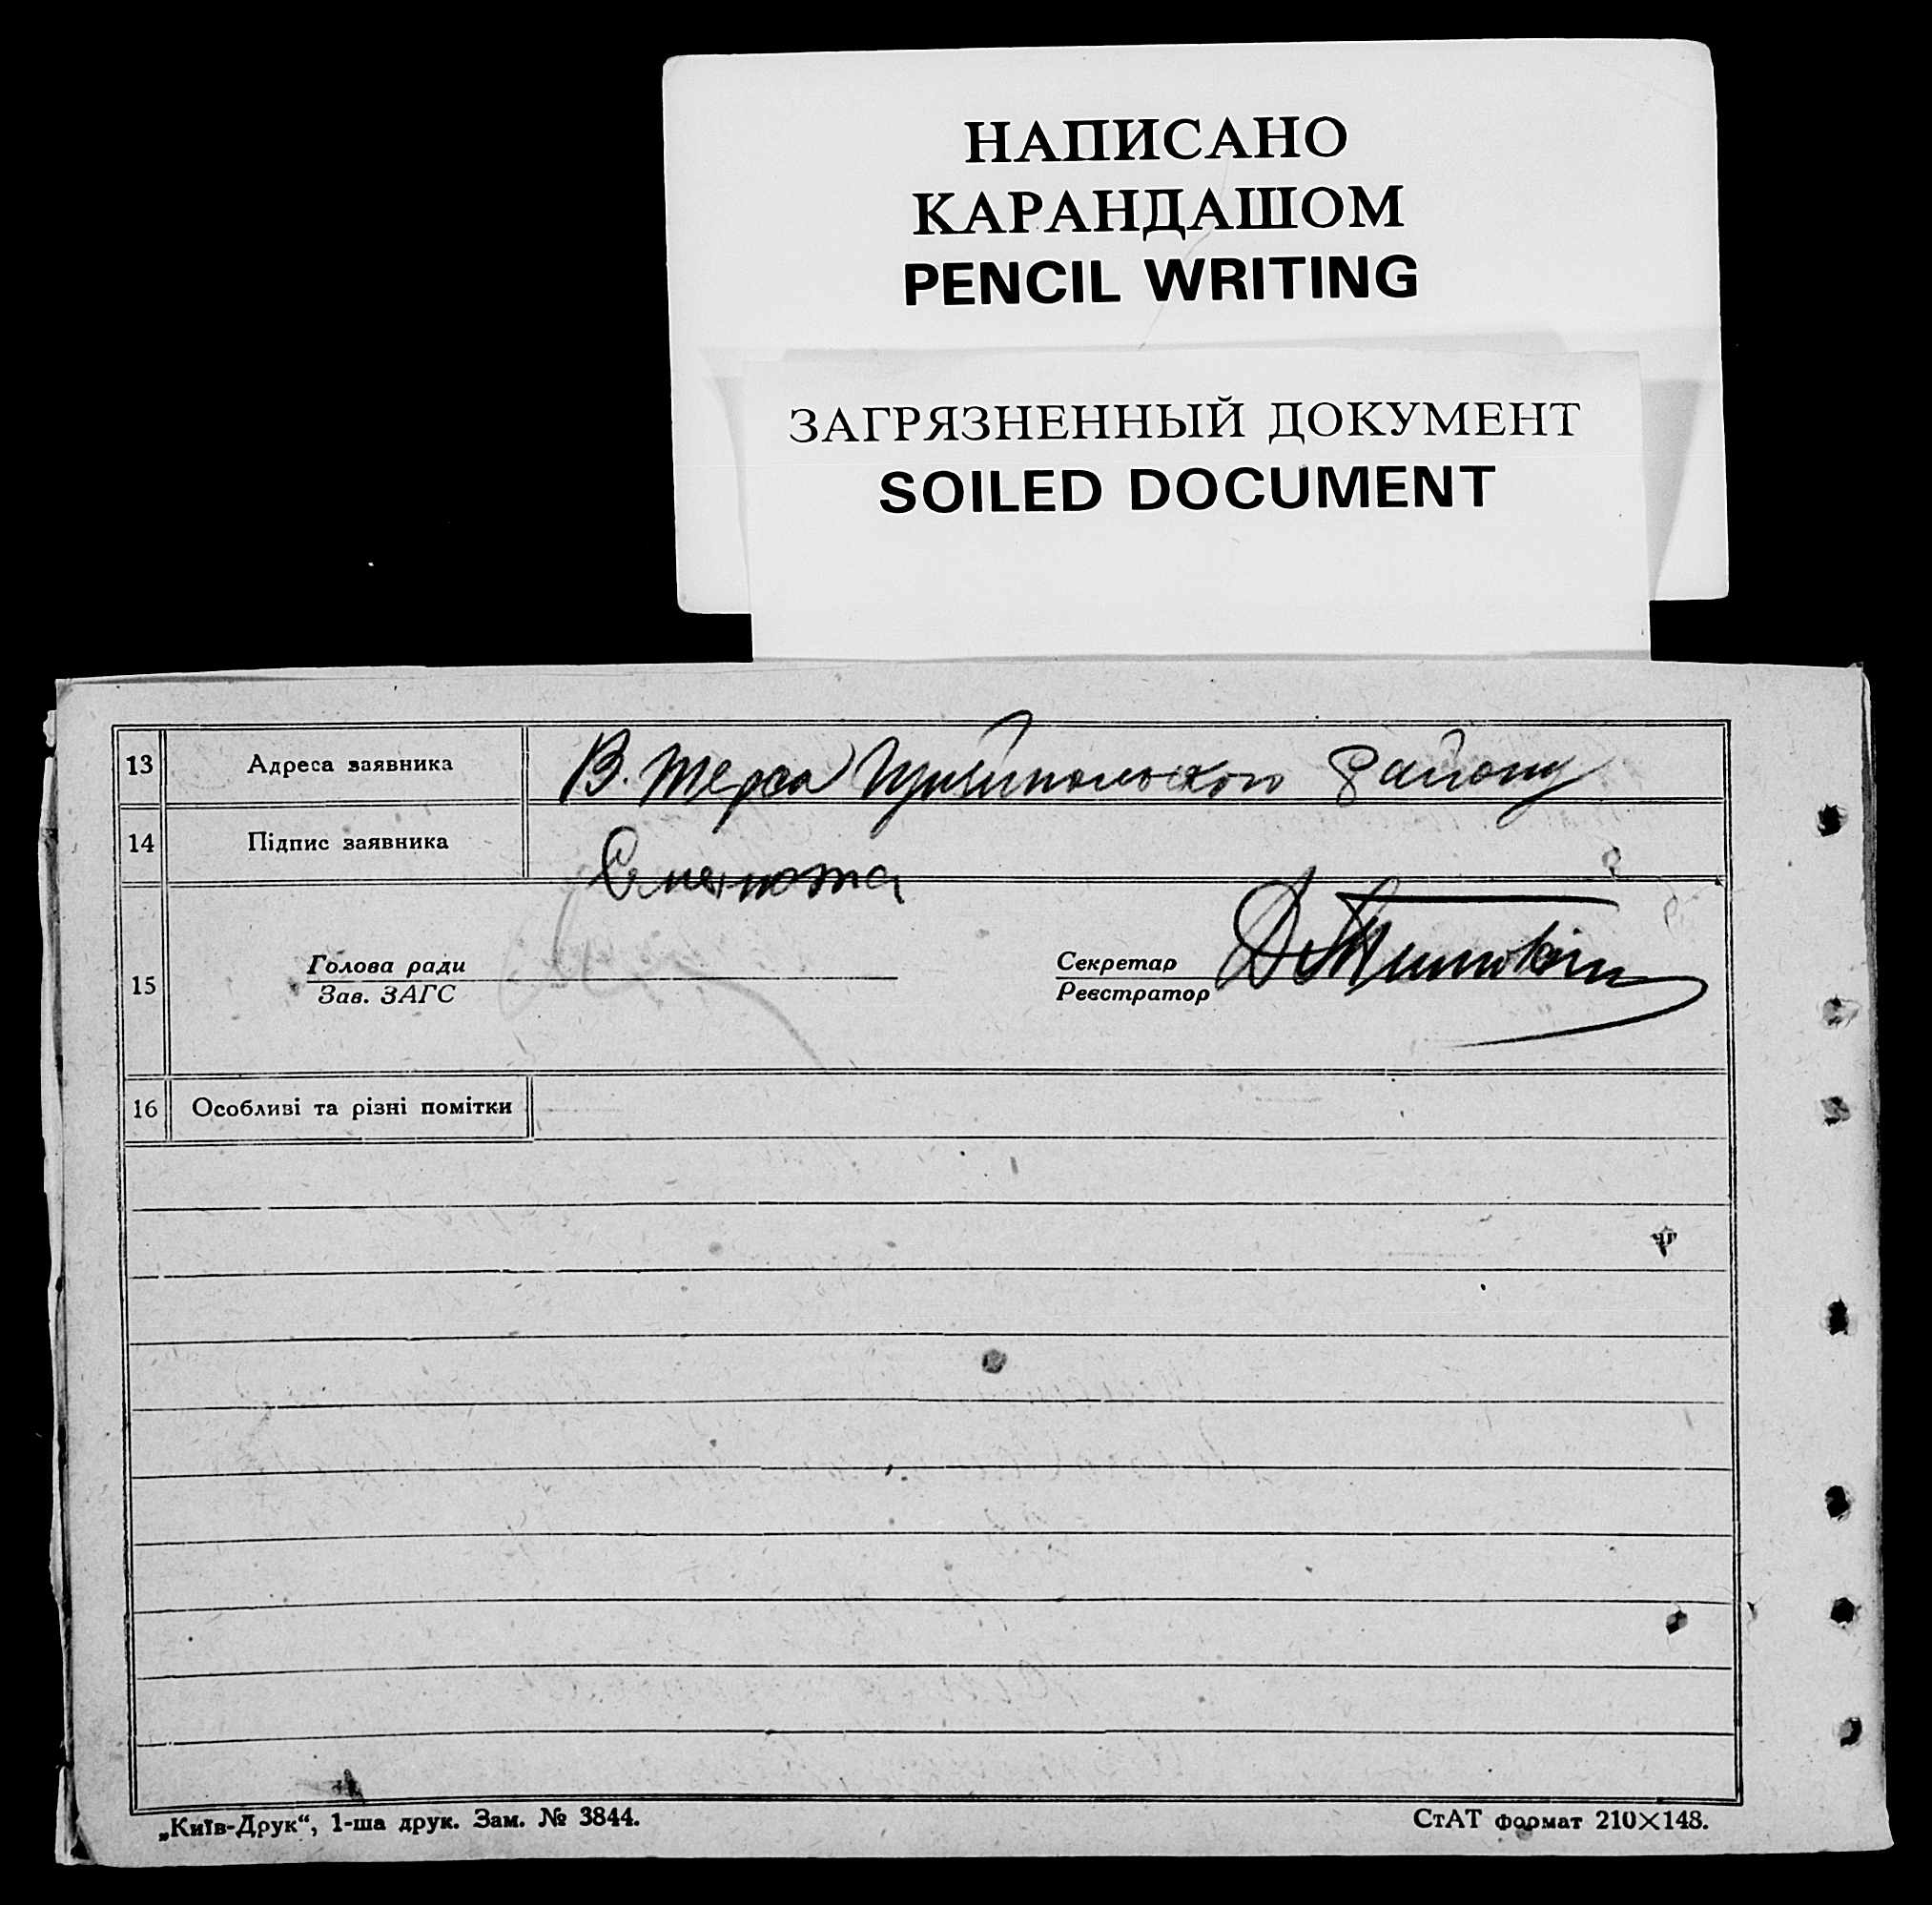 НАПИСАНО
КАРАНДАШОМ
PENCIL WRITING
ЗАГРЯЗНЕННЫЙ ДОКУМЕНТ
SOILED DOCUMENT
13 Адреса заявника В. Терса Гуляйпольского району
14 Підпис заявника
15 Голова ради Секретар
Зав. ЗАГС Реєстратор
16 Особливі та різні помітки
„Київ-Друк“, 1-ша друк. Зам. № 3844. СтАТ формат 210×148.